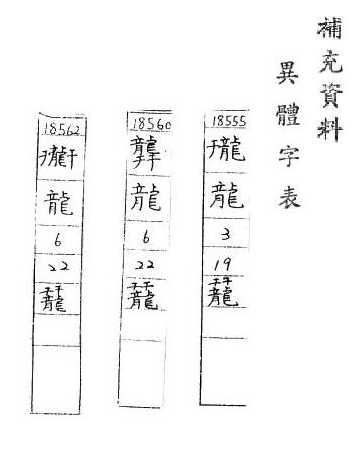 補充資料
異體字表
18555
龍
3
19
18560
龍
6
22
18562
龍
6
22